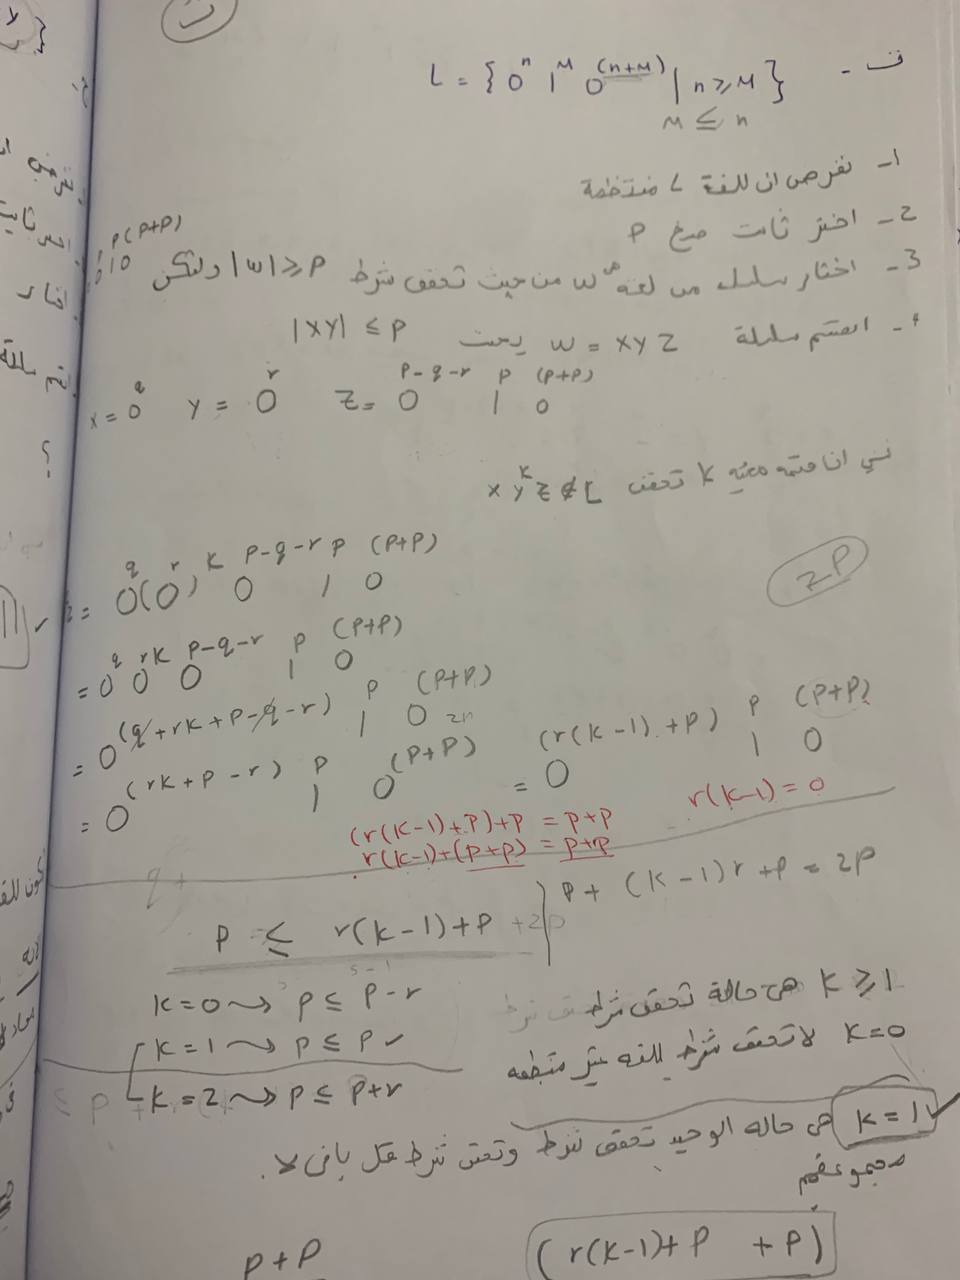 ف -
L = { 0^n 1^M 0^(n+M) | n ≥ M }
M ≤ n
1- نفرض ان للغة L منتظمة
2- اختر ثابت ضخ P
3- اختار سلسله من لغه w من حيث تحقق شرط |w| ≥ P ولتكن 0^p 1^p 0^(P+P)
4- اقسم سلسلة w = xyz بحيث |xy| ≤ P
x = 0^q y = 0^r z = 0^(p-q-r) 1^p 0^(P+P)
k تحقق xy^kz ∉ L
= 0^q (0^r)^k 0^(p-q-r) 1^p 0^(P+P)
2P
= 0^q 0^rk 0^(p-q-r) 1^p 0^(P+P)
= 0^(q+rk+p-q-r) 1^p 0^(P+P)
= 0^(rk+p-r) 1^p 0^(P+P) = 0^(r(k-1)+p) 1^p 0^(P+P)
(r(k-1)+P)+p = p+p r(k-1) = 0
r(k-1)+(p+p) = p+p
P + (k-1)r + p = 2P
P ≤ r(k-1)+P
k=0 ⇝ P ≤ P-r
k=1 ⇝ P ≤ P ✓
k=2 ⇝ P ≤ P+r
k ≥ 1 هي حالة تحقق شرط
k=0 لا تحقق شرط للغه غير منتظمه
k=1 هي حاله الوحيد تحقق شرط وتحقق شرط باقي لا.
مجموعهم
P+P (r(k-1)+P +P)